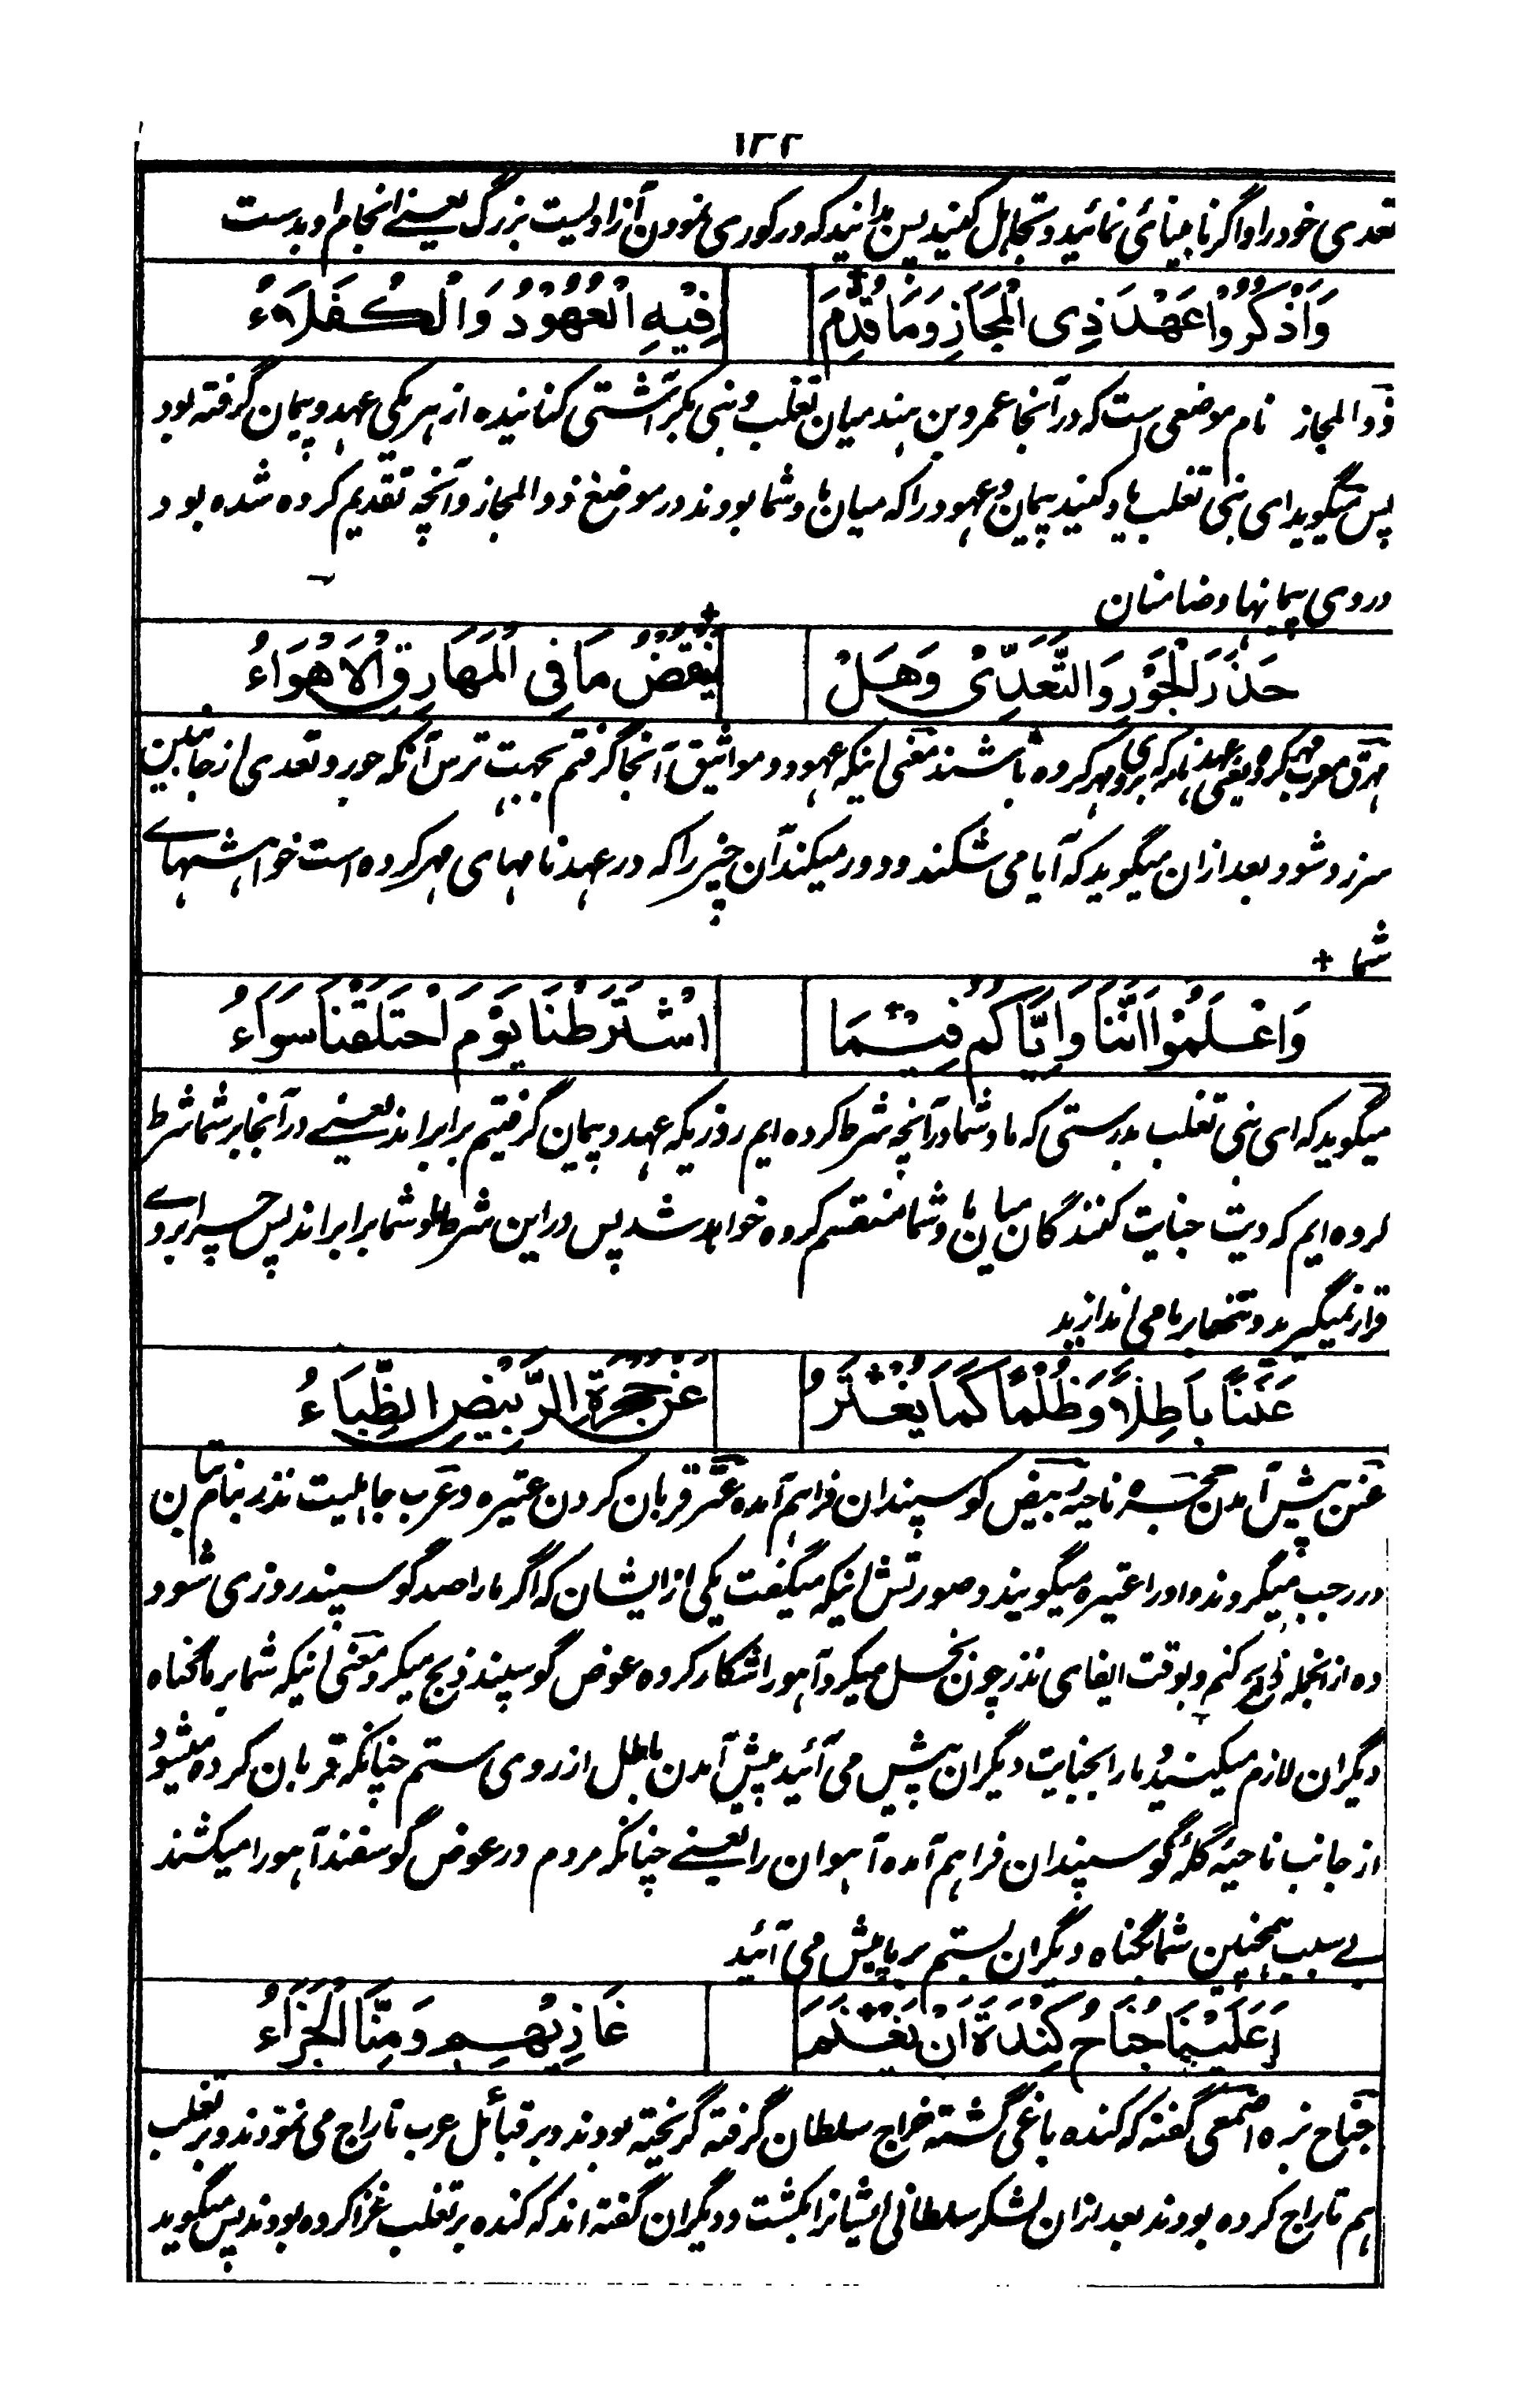 ۱۳۲
تعدی خود را و اگر نابینائی نمائید و تجاهل کنید پس بدانید که در کوری نمودن آزاد لیست بزرگ یعنے انجام او بدست
وَاذْكُرُوْا عَهْدَ ذِی الْمَجَازِ وَمَا قُدِّمَ فِيْهِ الْعُهُوْدُ وَالْكُفَلَاءُ
ذو المجاز نام موضعی است که در آنجا عمرو بن هند میان تغلب و بنی بکر آشتی کنانیده از هر یکی عهد و پیمان گرفته بود
پس میگوید ای بنی تغلب یاد کنید پیمان و عهود را که میان ما و شما بودند در موضع ذو المجاز و آنچه تقدیم کرده شده بود
در وی پیمانها و ضامنان
حَذَرَ الْجَوْرِ وَالتَّعَدِّیْ وَهَلْ یَنْقُضُ مَا فِی الْمَهَارِقِ الْاَهْوَاءُ
مهرق معرب مهر کرد یعنی عهد نامه که بروی مهر کرده باشند معنی اینکه عهود و مواثیق آنجا گرفتم بجهت ترس آنکه جور و تعدی از جانبین
سرزد شود بعد ازان میگوید که آیا می شکند و دور میکند آن چیز را که در عهد نامهای مهر کرده است خواهشهاے
شما +
وَاعْلَمُوْا اَنَّنَا وَاِیَّاكُمْ فِیْمَا اشْتَرَطْنَا یَوْمَ احْتَلَقْنَا سَوَاءُ
میگوید که ای بنی تغلب بدرستی که ما و شما در آنچه شرط کرده ایم روزیکه عهد و پیمان گرفتیم برابراند یعنے در آنجا بر شما شرط
کرده ایم که دیت جنایت کنندگان میان ما و شما منقسم کرده خواهد شد پس دراین شرط ما و شما برابراند پس چرا بروے
قرار نمیگیرید و تنها بر ما می اندازید
عَنَنًا بَاطِلًا وَظُلْمًا كَمَا یُعْتَرُ عَنْ حَجْرَةِ الرَّبِیْضِ الظِّبَاءُ
عنن پیش آمدن حجره ناحیه ربیض گوسپندان فراهم آمده عتر قربان کردن عتیره و عرب جاهلیت نذر بنام بتان
در رجب میکردند و او را عتیره میگویند و صورتش اینکه میگفت یکی از ایشان که اگر ما را صد گوسپند روزی شود
ده ازانجمله ذبح کنم و بوقت ایفای نذر چون بخل میکرد آهو را شکار کرده عوض گوسپند ذبح میکرد معنی اینکه شما بر ما گناه
دیگران لازم میکنید و ما را بجنایت دیگران پیش می آئید پیش آمدن باطل از روی ستم چنانکه قربان کرده میشود
از جانب ناحیۀ گلۀ گوسپندان فراهم آمده آهوان را یعنے چنانکه مردم در عوض گوسفند آهو را میکشند
بے سبب همچنین شما بگناه دیگران بستم بر ما پیش می آئید
اَعَلَیْنَا جُنَاحُ كِنْدَةَ اَنْ یَغْنَمَ غَازِیْهِمْ وَمِنَّا الْجَزَاءُ
جناح بزه اصمعی گفته که کنده باغی گشته خراج سلطان گرفته گریخته بودند و بر قبائل عرب تاراج می نمودند و بر تغلب
هم تاراج کرده بودند بعد ازان لشکر سلطانی ایشانرا بکشت و دیگران گفته اند که کنده بر تغلب غزا کرده بودند پس میگوید